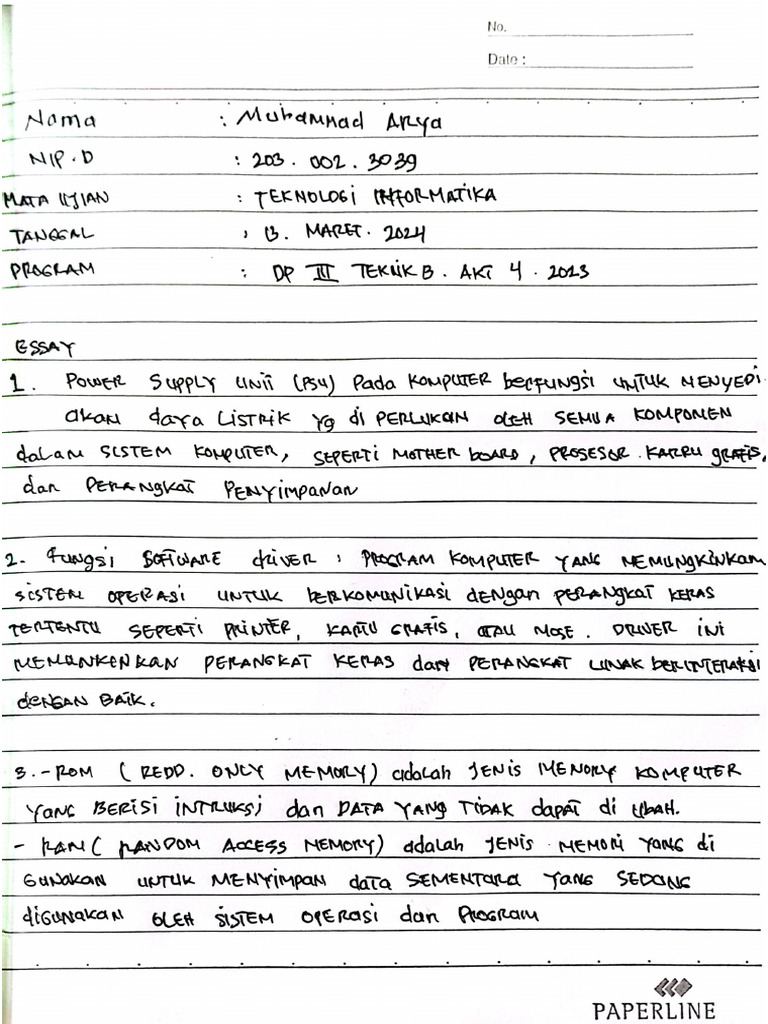 No.
Date :
Nama : Muhammad Arya
NIP.D : 203. 002. 3039
MATA UJIAN : TEKNOLOGI INFORMATIKA
TANGGAL : 13. MARET. 2024
PROGRAM : DP III TEKNIK B. AKT 4. 2023
ESSAY
1. POWER SUPPLY UNIT (PSU) Pada KOMPUTER berfungsi UNTUK MENYEDI
akan daya LISTRIK yg di PERLUKAN OLEH SEMUA KOMPONEN
dalam SISTEM KOMPUTER, SEPERTI MOTHER BOARD, PROSESOR. KARRU grafis,
dan PERANGKAT PENYIMPANAN
2. Fungsi SOFTWARE driver : PROGRAM KOMPUTER YANG MEMUNGKINKAN
SISTEM OPERASI UNTUK BERKOMUNIKASI dengan PERANGKAT KERAS
TERTENTU SEPERTI PRINTER, KARTU GRAFIS, ATAU MOSE. DRIVER INI
MEMUNKENKAN PERANGKAT KERAS dan PERANGKAT LUNAK BERINTERAKSI
dENGAN BAIK.
3. - ROM ( REDD. ONLY MEMORY) adalah JENIS MEMORY KOMPUTER
YANG BERISI INTRUKSI dan DATA YANG TIDAK dapat di UbAH.
- RAM ( RANDOM ACCESS MEMORY) adalah JENIS MEMORI YANG di
GUNAKAN UNTUK MENYIMPAN data SEMENTARA YANG SEDANG
diGUNAKAN OLEH SISTEM OPERASI dan PROGRAM
PAPERLINE